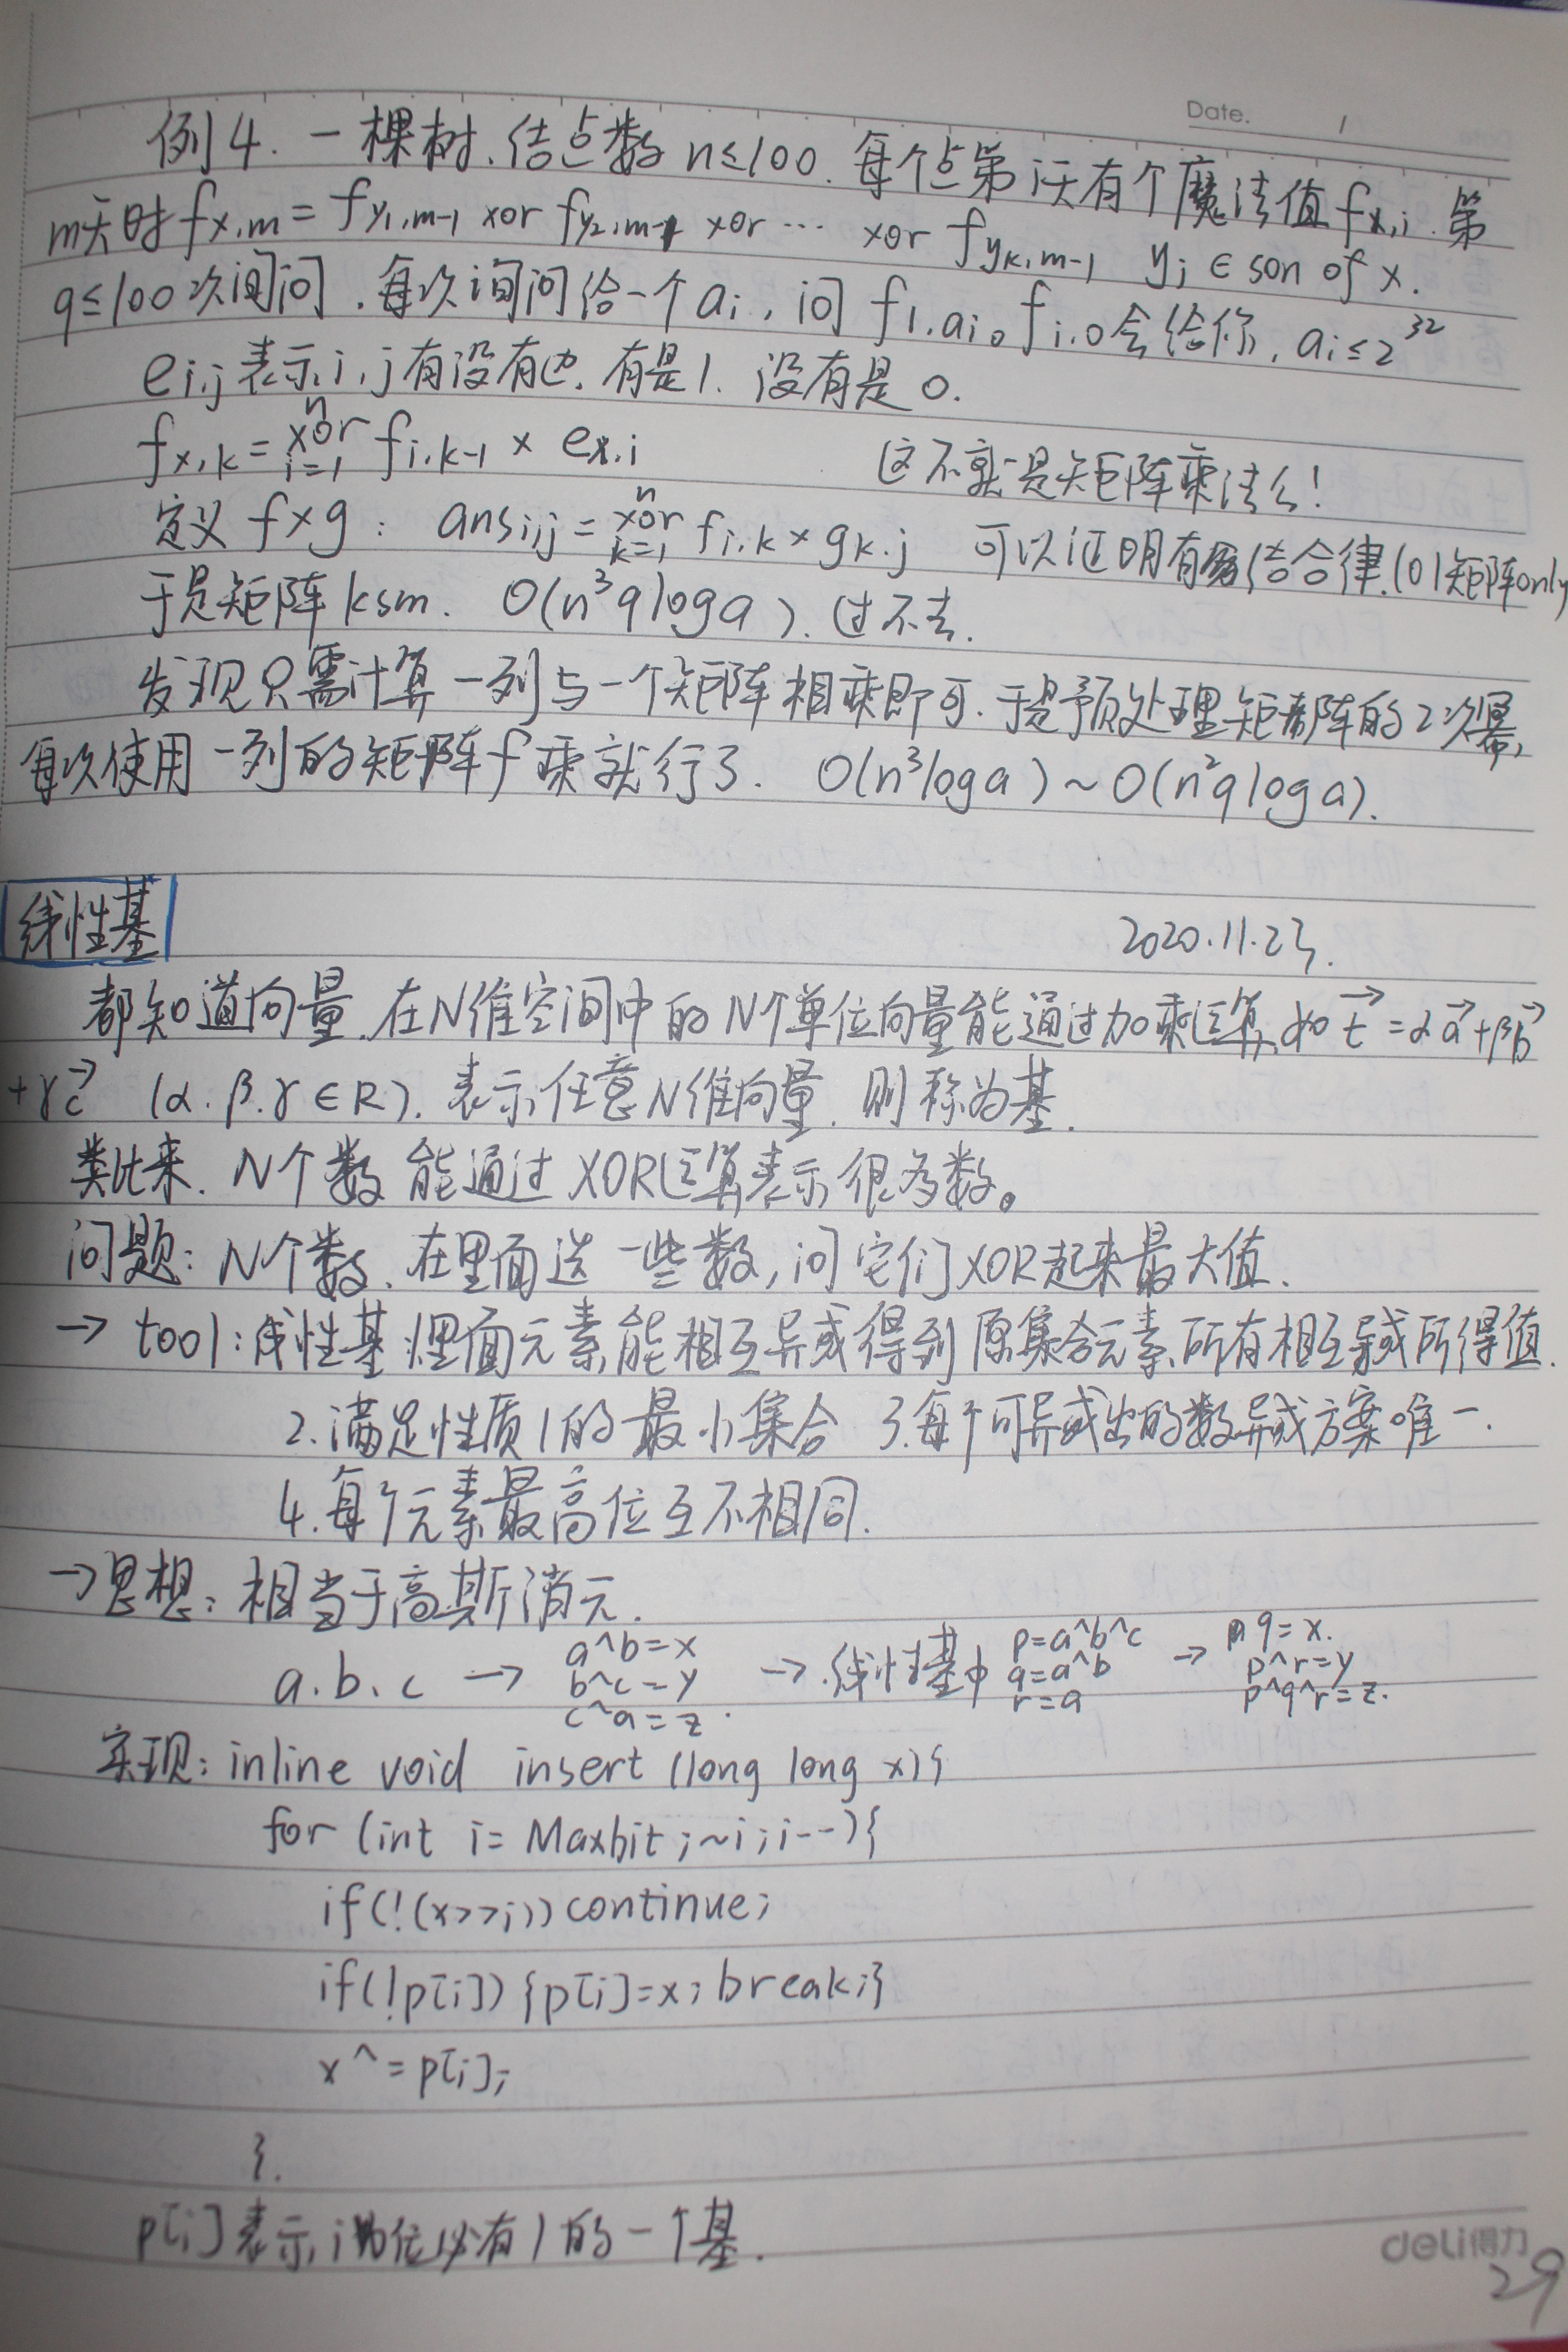 Date. /
例4. 一棵树、结点数 n≤100. 每个点第i天有个魔法值 fx,i. 第
m天时 fx,m = fy1,m-1 xor fy2,m-1 xor ... xor fyk,m-1 yj ∈ son of x.
q≤100次询问. 每次询问给一个 ai, 问 f1,ai。fi,0会给你, ai≤2^32
ei,j 表示i,j有没有边. 有是1. 没有是0.
fx,k = xor(i=1..n) fi,k-1 × ex,i 这不就是矩阵乘法么!
定义 f×g: ansi,j = xor(k=1..n) fi,k × gk,j 可以证明有结合律.(01矩阵only
于是矩阵ksm. O(n³qloga). 过不去.
发现只需计算一列与一个矩阵相乘即可. 于是预处理矩阵的2次幂,
每次使用一列的矩阵f乘就行了. O(n³loga) ~ O(n²qloga).
线性基 2020.11.23.
都知道向量. 在N维空间中的N个单位向量能通过加乘运算, 如 t⃗ = αa⃗ + βb⃗
+ γc⃗ (α.β.γ∈R). 表示任意N维向量. 则称为基.
类比来. N个数能通过XOR运算表示很多数。
问题: N个数. 在里面选一些数, 问它们XOR起来最大值.
→ tool: 线性基 1.里面元素能相互异或得到原集合元素所有相互异或所得值.
2.满足性质1的最小集合 3.每个可异或出的数异或方案唯一.
4.每个元素最高位互不相同.
→思想: 相当于高斯消元.
a.b.c → a^b=x b^c=y c^a=z. → 线性基中 p=a^b^c q=a^b r=a → q=x. p^r=y p^q^r=z.
实现: inline void insert (long long x){
for (int i= Maxbit ;~i;i--){
if(!(x>>i)) continue;
if(!p[i]) {p[i]=x; break;}
x^=p[i];
}.
p[i]表示i位必有1的一个基.
deli得力
29